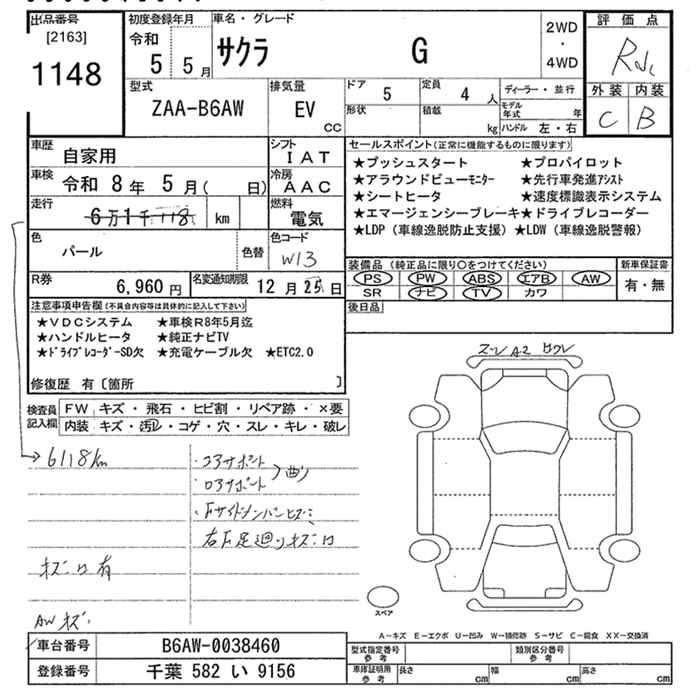 出品番号
[2163]
1148
初度登録年月
令和
5 5月
車名・グレード
サクラ G
2WD
・
4WD
評価点
外装 内装
C B
型式
ZAA-B6AW
排気量
EV
CC
ドア 5
定員 4 人
形状
積載 kg
ディーラー・並行
モデル年式 年
ハンドル 左・右
車歴
自家用
シフト
IAT
車検
令和 8年 5月( 日)
冷房
AAC
走行
6万1千118 km
燃料
電気
色
パール
色替
色コード
W13
R券
6,960円
名変通知期限
12月25日
セールスポイント(正常に機能するものに限ります)
★プッシュスタート ★プロパイロット
★アラウンドビューモニター ★先行車発進アシスト
★シートヒータ ★速度標識表示システム
★エマージェンシーブレーキ★ドライブレコーダー
★LDP(車線逸脱防止支援) ★LDW(車線逸脱警報)
装備品(純正品に限り○をつけてください)
PS PW ABS エアB AW
SR ナビ TV カワ
新車保証書
有・無
後日品
注意事項申告欄(不具合内容等は具体的に記入して下さい)
★VDCシステム ★車検R8年5月迄
★ハンドルヒータ ★純正ナビTV
★ドライブレコーダーSD欠 ★充電ケーブル欠 ★ETC2.0
修復歴 有〔箇所 〕
検査員
記入欄
FW キズ・飛石・ヒビ割・リペア跡・×要
内装 キズ・汚レ・コゲ・穴・スレ・キレ・破レ
6118km
コアサポート
ロアサポート
曲り
右下足廻りキズ
キズ 有
AWキズ
A2
スペア
A-キズ E-エクボ U-凹み W-補修跡 S-サビ C-腐食 XX-交換済
車台番号 B6AW-0038460
登録番号 千葉 582 い 9156
型式指定番号
参考
類別区分番号
参考
車庫証明用
参考
長さ cm
幅 cm
高さ cm